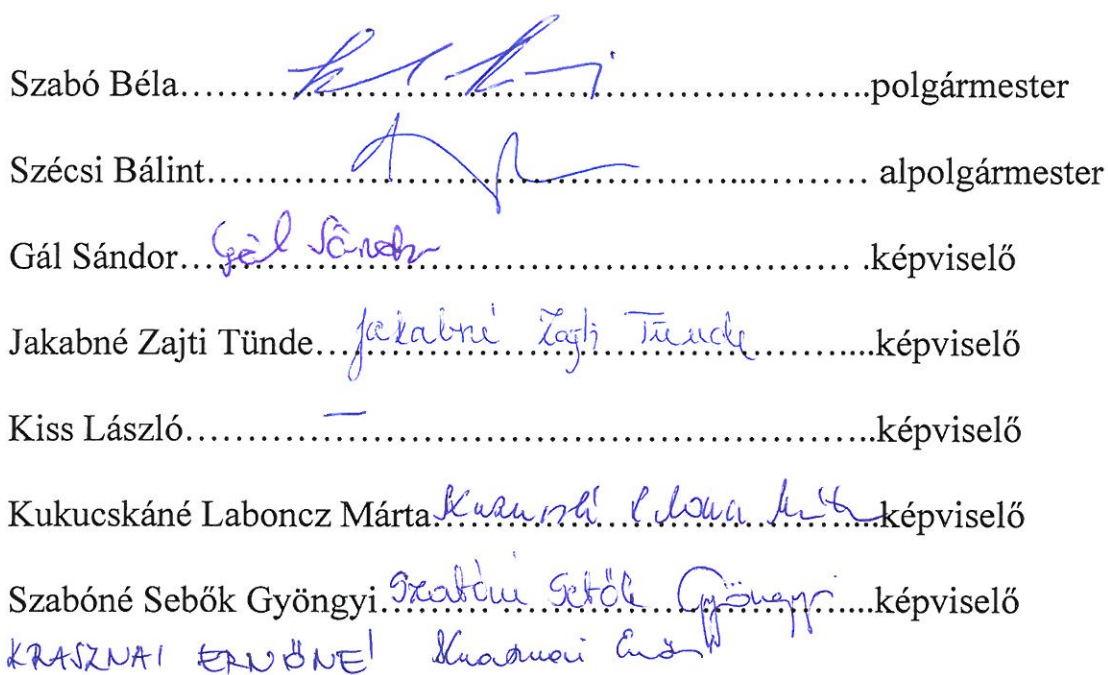 Szabó Béla……………………………………………..polgármester
Szécsi Bálint………………………………...……… alpolgármester
Gál Sándor…Gál Sándor………………………… .képviselő
Jakabné Zajti Tünde…Jakabné Zajti Tünde…....képviselő
Kiss László…—…………………………………..képviselő
Kukucskáné Laboncz Márta……………...képviselő
Szabóné Sebők Gyöngyi.Szabóné Sebők Gyöngyi.....képviselő
KRASZNAI ERNŐNÉ Krasznai Ernő